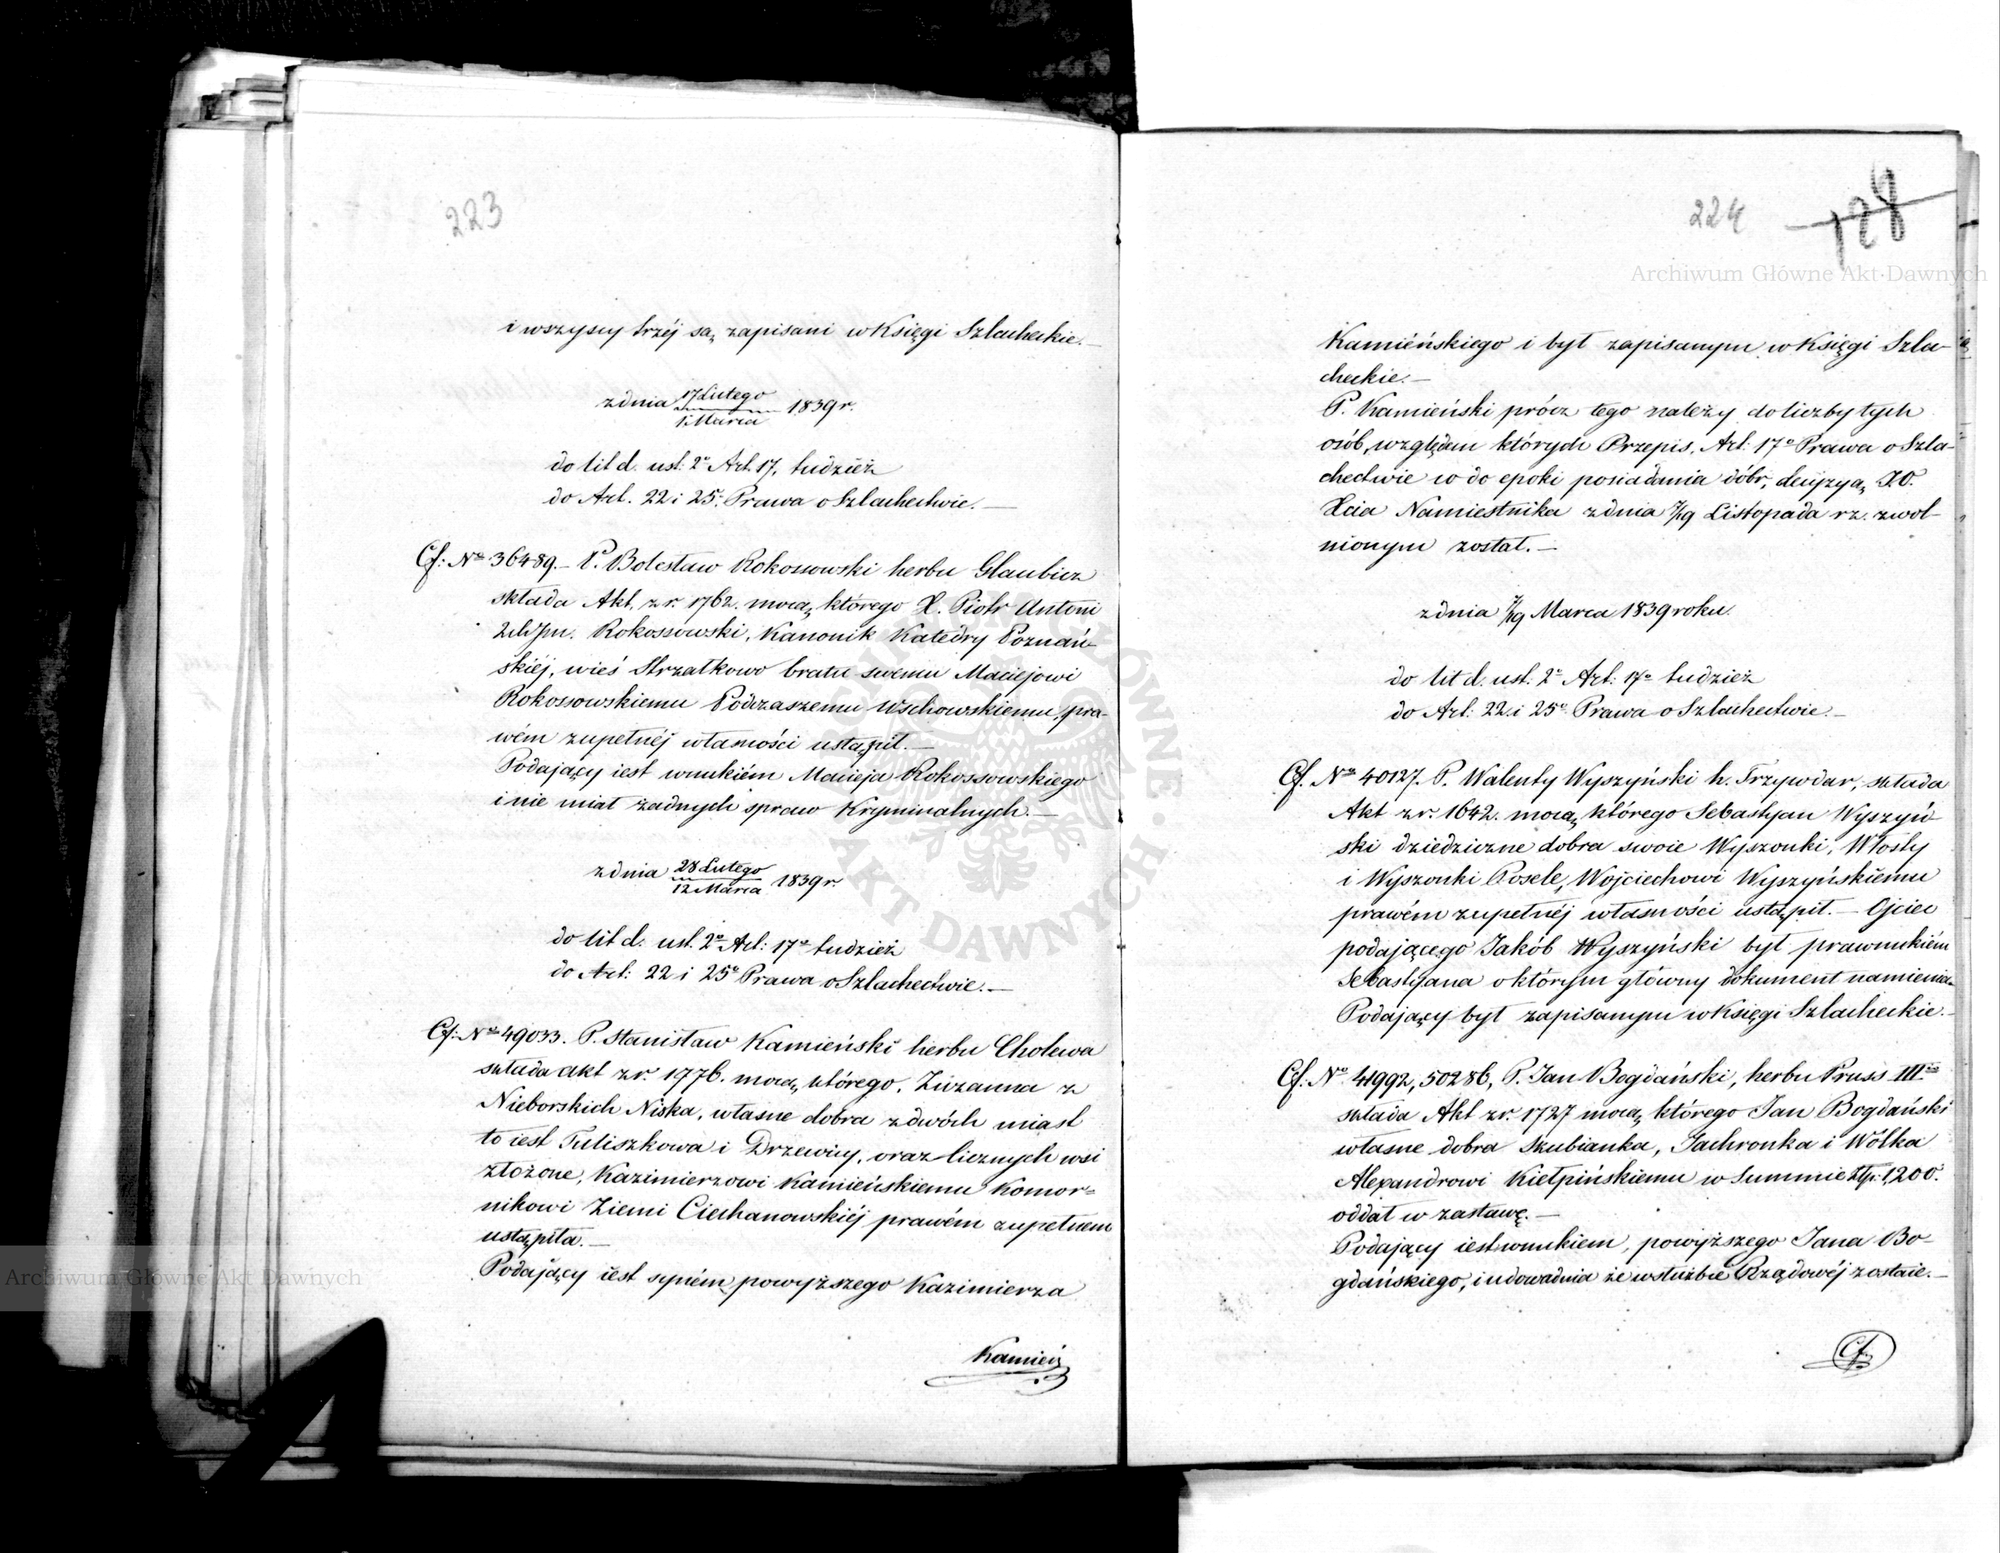 223
i wszyscy trzéj są zapisani w Księgi Szlacheckie.—
z dnia 17 Lutego / 1 Marca 1839 r.
do lit d. ust: 2º Art. 17, tudzież
do Art. 22 i 25º Prawa o Szlachectwie.—
Cf: Nº 36489.— P. Bolesław Rokossowski herbu Glaubicz
składa Akt, z r. 1762. mocą którego X. Piotr Antoni
Rokossowski, Kanonik Katedry Poznań-
skiéj, wieś Strzałkowo bratu swemu Maciejowi
Rokossowskiemu Podczaszemu Wschowskiemu, pra-
wém zupełnéj własności ustąpił.—
Podający iest wnukiém Macieja Rokossowskiego
i nie miał żadnych spraw Kryminalnych.—
z dnia 28 Lutego / 12 Marca 1839 r.
do lit d: ust. 2º Art: 17º tudzież
do Art: 22 i 25º Prawa o Szlachectwie.—
Cf: Nº 49033. P. Stanisław Kamieński herbu Cholewa
składa akt z r. 1776. mocą którego, Zuzanna z
Nieborskich Niska, własne dobra z dwóch miast
to iest Tuliszkowa i Drzewicy, oraz licznych wsi
złożone, Kazimierzowi Kamieńskiemu Komor-
nikowi Ziemi Ciechanowskiéj prawém zupełnem
ustąpiła.—
Podający iest syném powyższego Kazimierza
Kamień
224
128
Kamieńskiego i był zapisanym w Księgi Szla-
checkie.—
P. Kamieński prócz tego należy do liczby tych
osób, względem których Przepis, Art: 17º Prawa o Szla-
chectwie co do epoki posiadania dóbr, decyzyą JO.
Xcia Namiestnika z dnia 7/19 Listopada rz. zwol-
nionym został.—
z dnia 7/19 Marca 1839 roku.
do lit d: ust: 2º Art: 17º tudzież
do Art: 22 i 25º Prawa o Szlachectwie.—
Cf. Nº 40127. P. Walenty Wyszyński h. Trzywdar, składa
Akt z r. 1642. mocą którego Sebastyan Wyszyń-
ski dziedziczne dobra swoie Wyszonki, Włosty
i Wyszonki Posele, Wojciechowi Wyszyńskiemu
prawém zupełnéj własności ustąpił.— Ojciec
podającego Jakób Wyszyński był prawnukiém
Sebastyana o którym główny dokument namienia.
Podający był zapisanym w Księgi Szlacheckie.—
Cf: Nº 41992, 50286, P. Jan Bogdański, herbu Pruss III.
składa Akt z r. 1727 mocą którego Jan Bogdański
własne dobra Szubianka, Jachronka i Wólka
Alexandrowi Kiełpińskiemu w Summie Złp: 1,200.
oddał w zastawę.—
Podający iest wnukiem, powyższego Jana Bo-
gdańskiego, i udowadnia że w służbie Rządowéj zostaie.—
Cf:
Archiwum Główne Akt Dawnych
Archiwum Główne Akt Dawnych